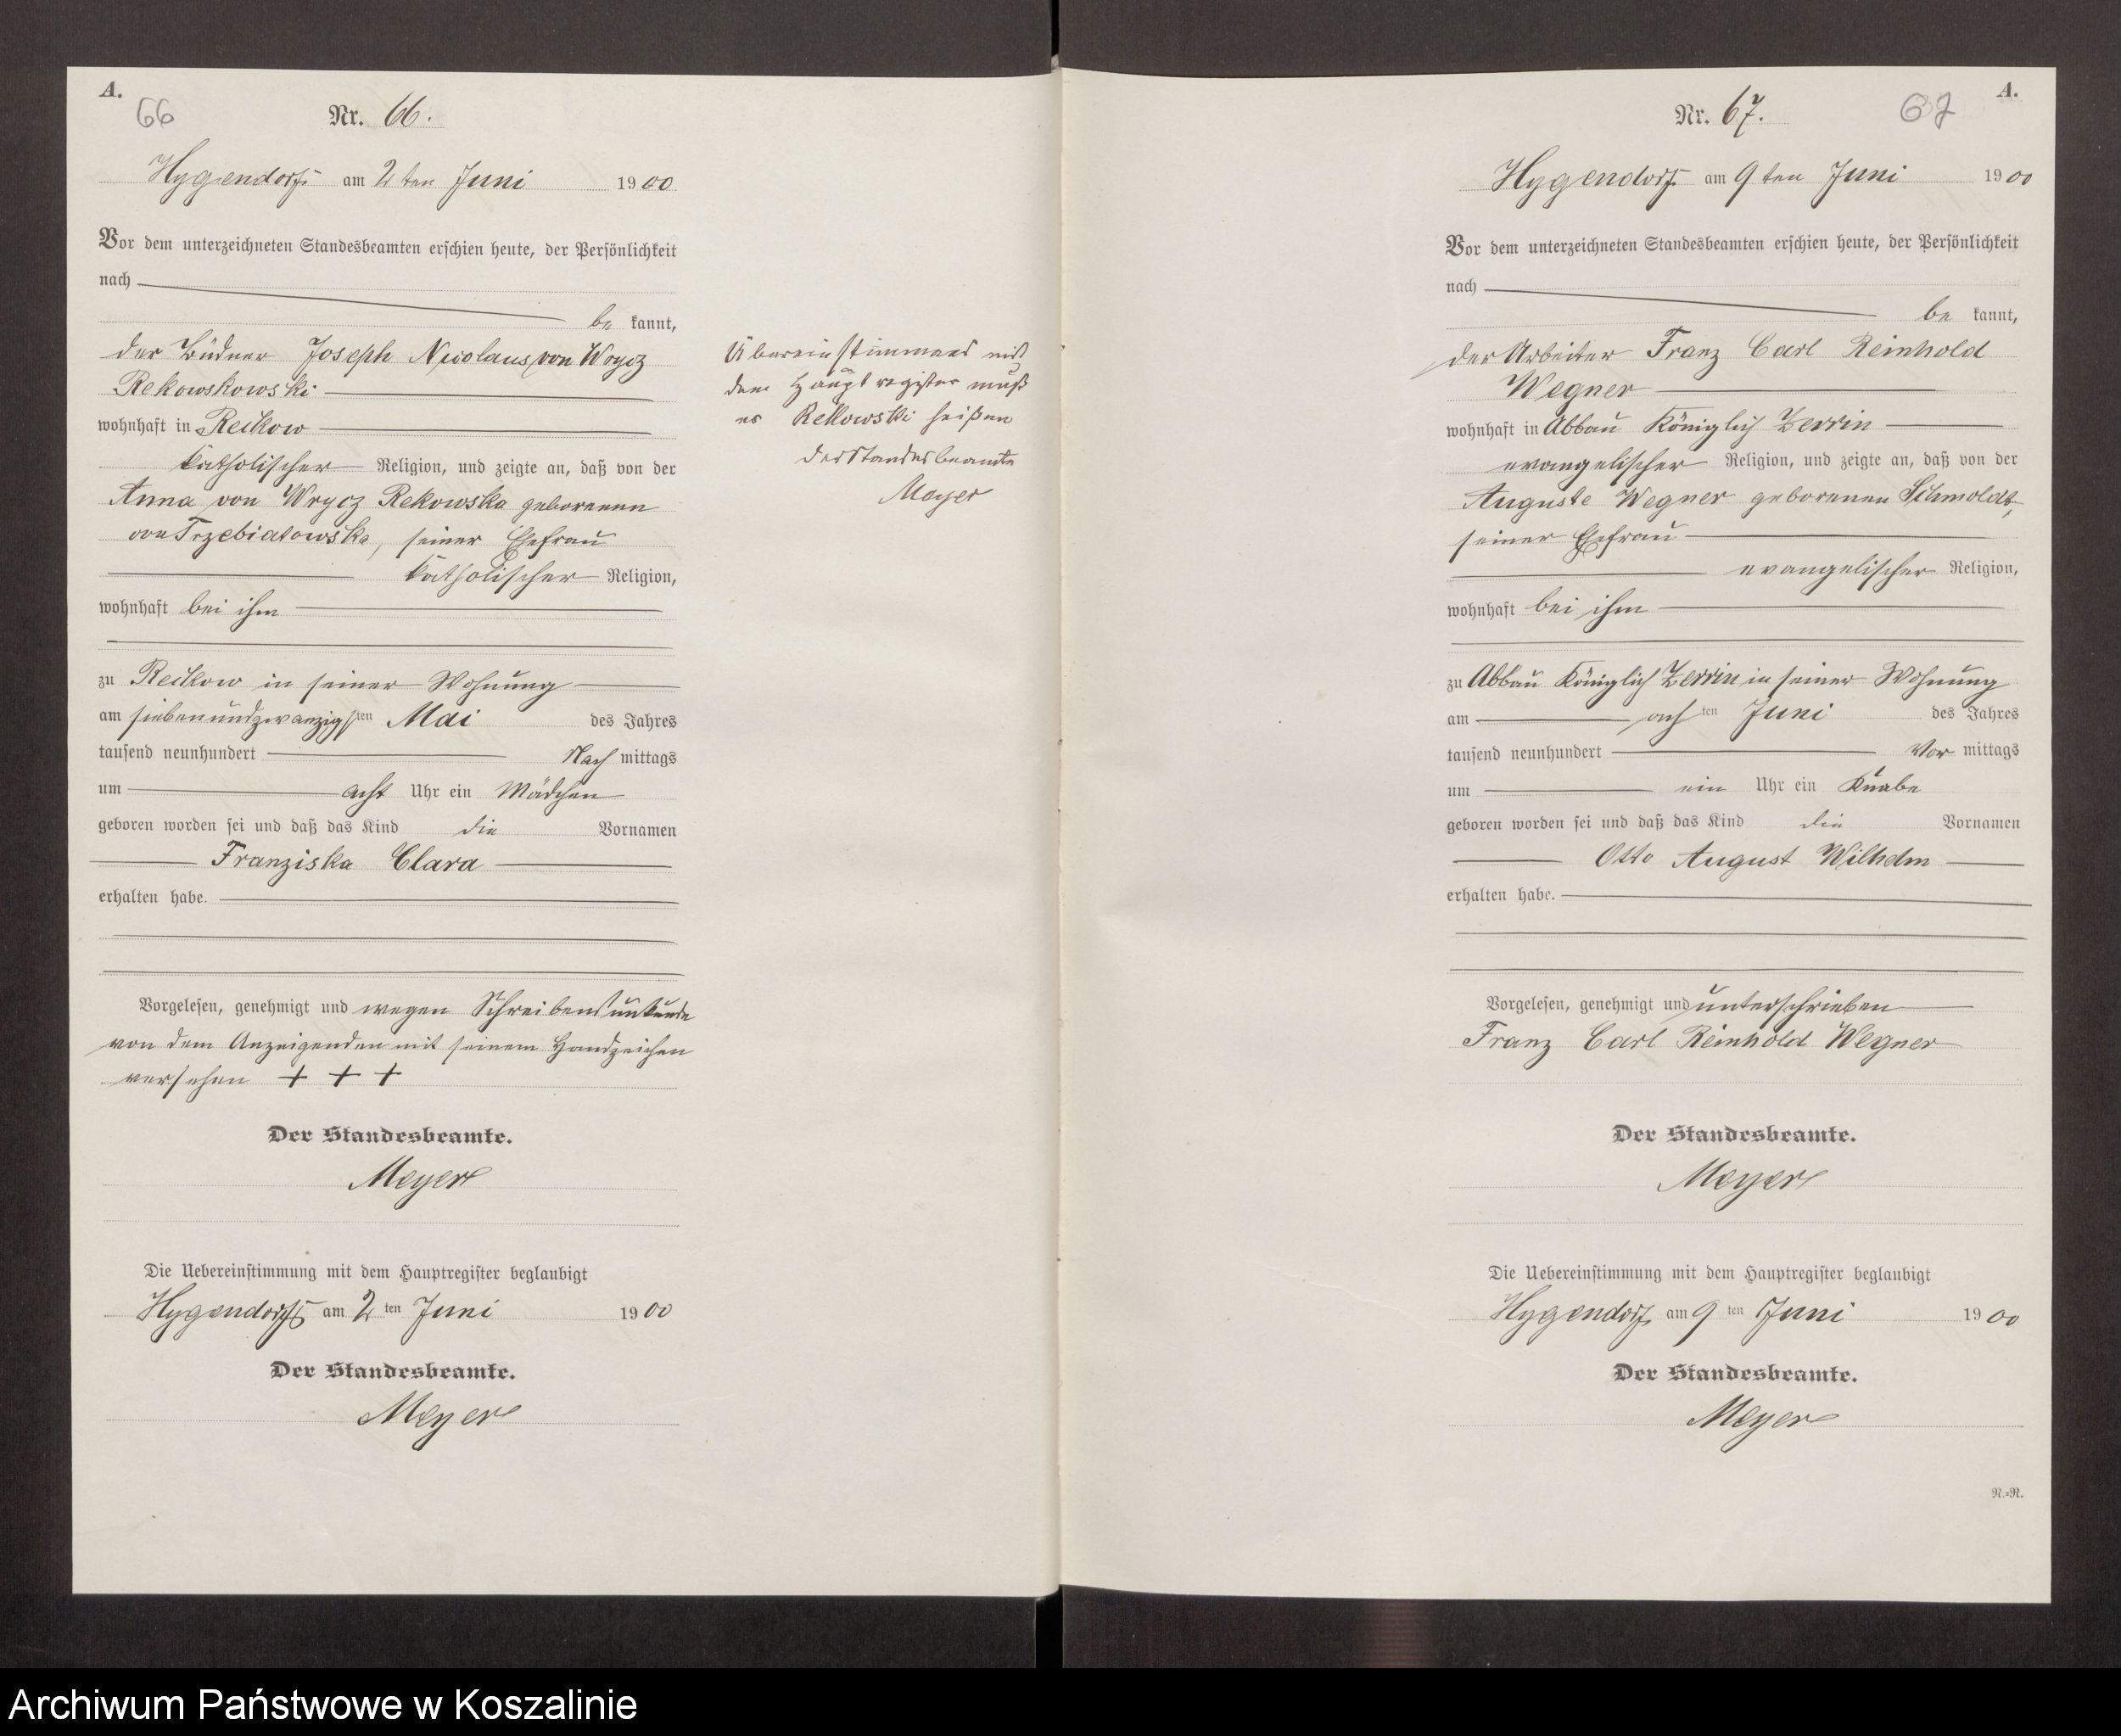 A.
66
Nr. 66.
Hygendorf am 2ten Juni 1900
Vor dem unterzeichneten Standesbeamten erschien heute, der Persönlichkeit
nach
be kannt,
der Büdner Joseph Nicolaus von Wrycz
Rekowskowski
wohnhaft in Reckow
katholischer Religion, und zeigte an, daß von der
Anna von Wrycz Rekowska geborenen
von Trzebiatowska, seiner Ehefrau
katholischer Religion,
wohnhaft bei ihm
zu Reckow in seiner Wohnung
am siebenundzwanzigsten Mai des Jahres
tausend neunhundert Nach mittags
um acht Uhr ein Mädchen
geboren worden sei und daß das Kind die Vornamen
Franziska Clara
erhalten habe.
Vorgelesen, genehmigt und wegen Schreibensunkunde
von dem Anzeigenden mit seinem Handzeichen
versehen + + +
Der Standesbeamte.
Meyer
Die Uebereinstimmung mit dem Hauptregister beglaubigt
Hygendorf am 2ten Juni 1900
Der Standesbeamte.
Meyer
Übereinstimmend mit
dem Hauptregister muß
es Rekowski heißen
der Standesbeamte
Meyer
A.
67
Nr. 67.
Hygendorf am 9ten Juni 1900
Vor dem unterzeichneten Standesbeamten erschien heute, der Persönlichkeit
nach
be kannt,
der Arbeiter Franz Carl Reinhold
Wegner
wohnhaft in Abbau Königlich Zerrin
evangelischer Religion, und zeigte an, daß von der
Auguste Wegner geborenen Schmoldt,
seiner Ehefrau
evangelischer Religion,
wohnhaft bei ihm
zu Abbau Königlich Zerrin in seiner Wohnung
am achten Juni des Jahres
tausend neunhundert Vor mittags
um ein Uhr ein Knabe
geboren worden sei und daß das Kind die Vornamen
Otto August Wilhelm
erhalten habe.
Vorgelesen, genehmigt und unterschrieben
Franz Carl Reinhold Wegner
Der Standesbeamte.
Meyer
Die Uebereinstimmung mit dem Hauptregister beglaubigt
Hygendorf am 9ten Juni 1900
Der Standesbeamte.
Meyer
N.=N.
Archiwum Państwowe w Koszalinie